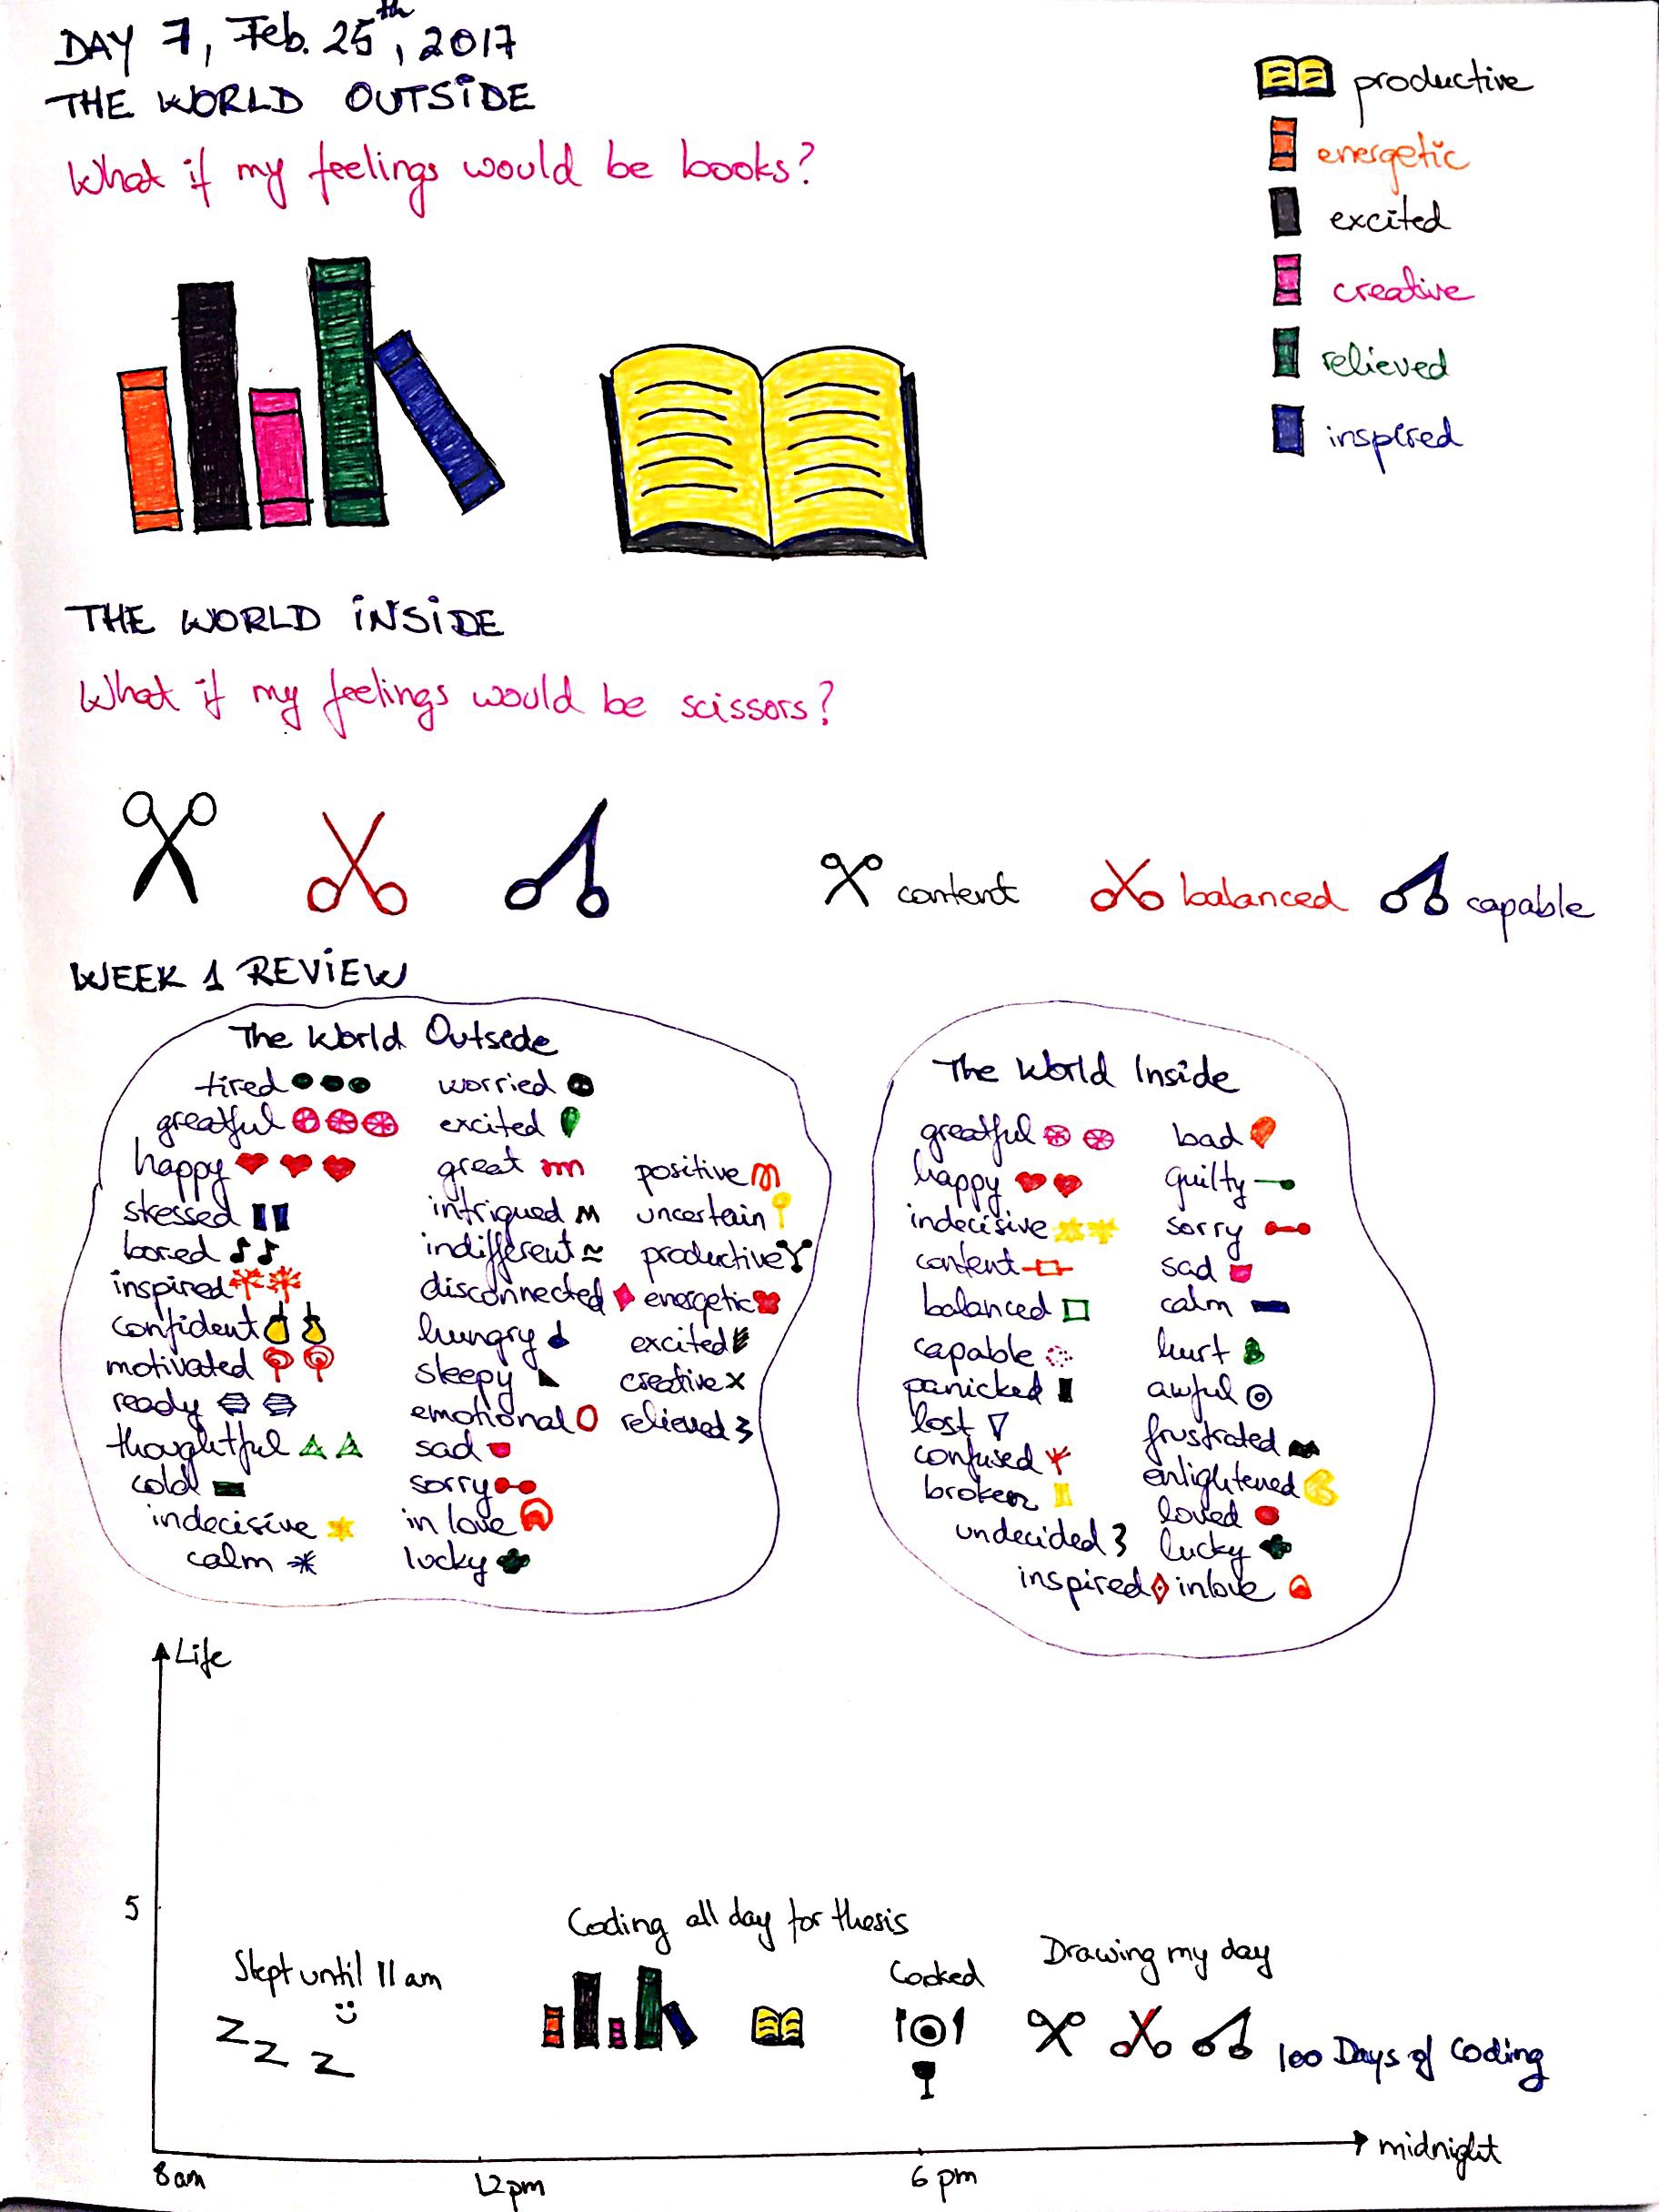 DAY 7, Feb. 25th, 2017
THE WORLD OUTSIDE
What if my feelings would be books?
productive
energetic
excited
creative
relieved
inspired
THE WORLD INSIDE
What if my feelings would be scissors?
content
balanced
capable
WEEK 1 REVIEW
The World Outsede
tired
greatful
happy
stressed
bored
inspired
confident
motivated
ready
thoughtful
cold
indecisive
calm
worried
excited
great
intrigued
indifferent
disconnected
hungry
sleepy
emotional
sad
sorry
in love
lucky
positive
uncertain
productive
energetic
excited
creative
relieved
The World Inside
greatful
happy
indecisive
content
balanced
capable
panicked
lost
confused
broken
undecided
inspired
bad
guilty
sorry
sad
calm
hurt
awful
frustrated
enlightened
loved
lucky
in love
Life
5
Slept until 11 am
z z z
Coding all day for thesis
Cooked
Drawing my day
100 Days of Coding
8am
12pm
6 pm
midnight